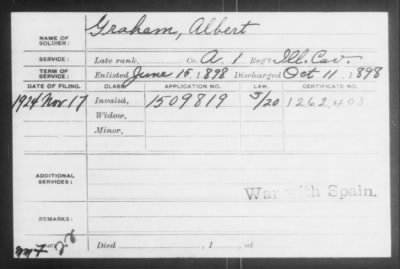 NAME OF SOLDIER: Graham, Albert
SERVICE: Late rank, Co. A. 1 Reg't Ill. Cav.
TERM OF SERVICE: Enlisted June 15, 1898 Discharged Oct 11, 1898
DATE OF FILING. CLASS. APPLICATION NO. LAW. CERTIFICATE NO.
1924 Nov. 17 Invalid, 1509819 J/20 1262,403
Widow,
Minor,
ADDITIONAL SERVICES:
War with Spain.
REMARKS:
Died , 1 , at